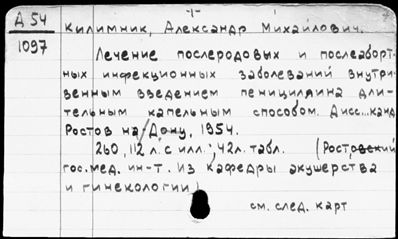 Д 54
1097
Килимник, Александр Михайлович.
Лечение послеродовых и послеаборт-
ных инфекционных заболеваний внутри-
венным введением пенициллина дли-
тельным капельным способом. Дисс...канд
Ростов на/Дону, 1954.
260, 112 л. с илл.; 42л. табл. (Ростовский
гос. мед. ин-т. Из кафедры акушерства
и гинекологии)
см. след. карт